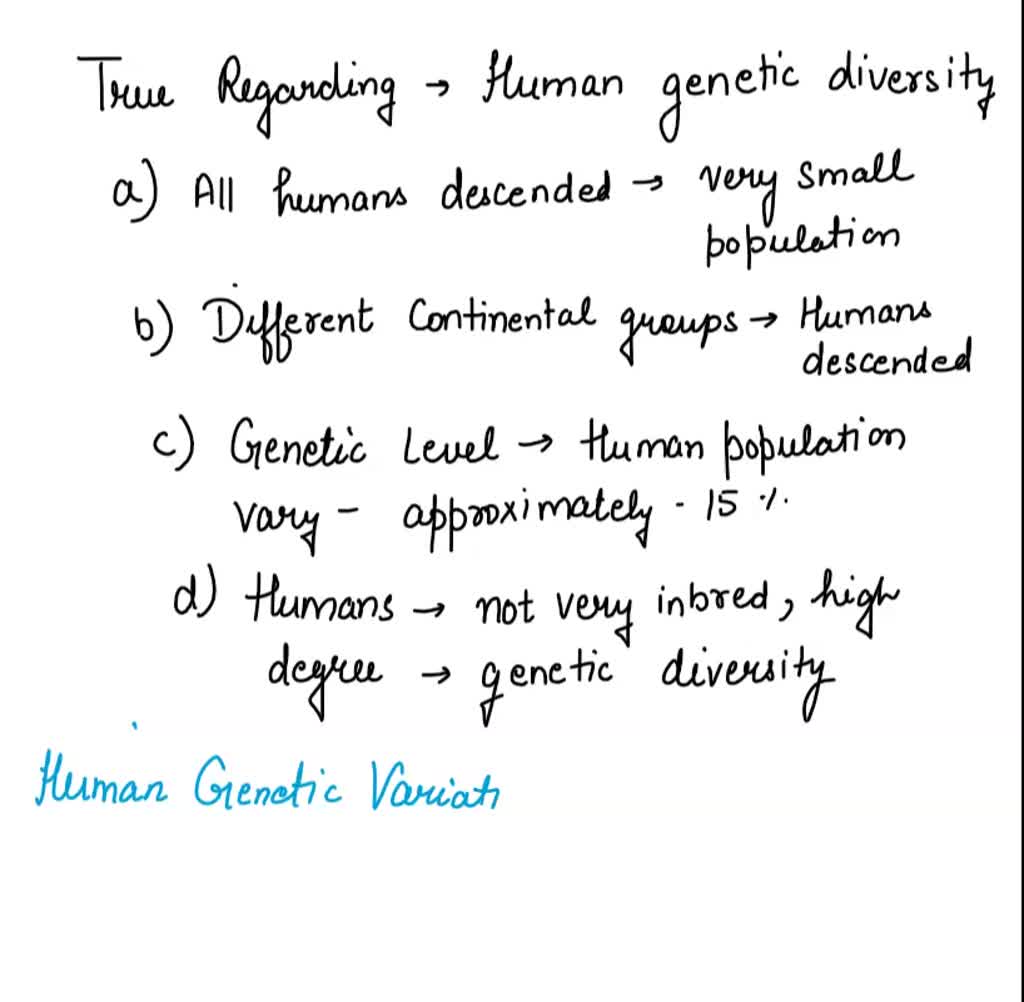 True Regarding → Human genetic diversity
a) All humans descended → very small
population
b) Different Continental groups → Humans
descended
c) Genetic Level → Human population
vary - approximately - 15 %.
d) Humans → not very inbred, high
degree → genetic diversity
Human Genetic Variati